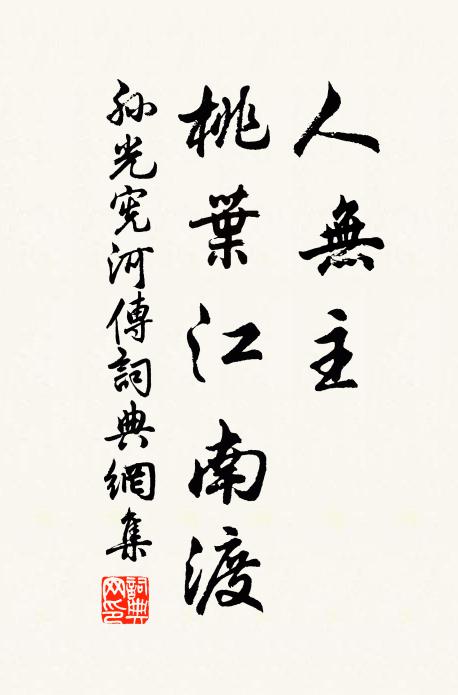 人無主
桃葉江南渡
孫光憲河傳詞典網集
詞典網印